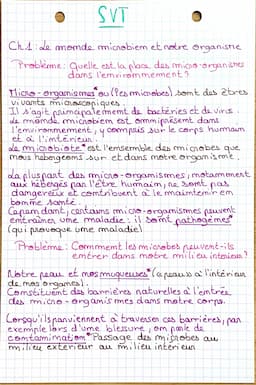 SVT
Ch.1 : Le monde microbien et notre organisme
Problème : Quelle est la place des micro-organismes
dans l'environnement ?
Micro-organismes* ou (Les microbes) sont des êtres
vivants microscopiques.
Il s'agit principalement de bactéries et de virus.
Le monde microbien est omniprésent dans
l'environnement, y compris sur le corps humain
et à l'intérieur.
Le microbiote* est l'ensemble des microbes que
nous hébergeons sur et dans notre organisme.
La plupart des micro-organismes, notamment
aux hébergés par l'être humain, ne sont pas
dangereux et contribuent à le maintenir en
bonne santé.
Cependant, certains micro-organismes peuvent
entraîner une maladie : il sont pathogènes*
(qui provoque une maladie)
Problème : Comment les microbes peuvent-ils
entrer dans notre milieu intérieur ?
Notre peau et nos muqueuses* (a peau à l'intérieur
de nos organes).
Constituent des barrières naturelles à l'entrée
des micro-organismes dans notre corps.
Lorsqu'ils parviennent à traverser ces barrières, par
exemple lors d'une blesure, on parle de
contamination* Passage des microbes au
milieu extérieur au milieu intérieur